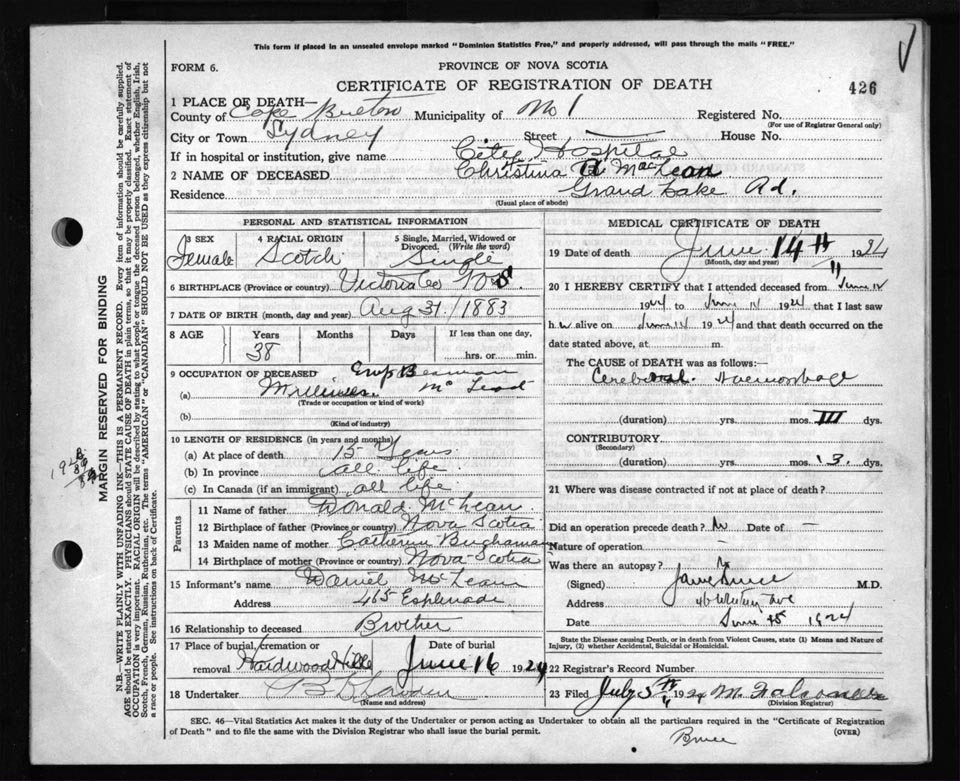 This form if placed in an unsealed envelope marked "Dominion Statistics Free," and properly addressed, will pass through the mails "FREE."
FORM 6.
PROVINCE OF NOVA SCOTIA
CERTIFICATE OF REGISTRATION OF DEATH
426
1 PLACE OF DEATH—
County of Cape Breton Municipality of No 1 Registered No.
(For use of Registrar General only)
City or Town Sydney Street — House No.
If in hospital or institution, give name City Hospital
2 NAME OF DECEASED Christina A MacLean
Residence Grand Lake Rd.
(Usual place of abode)
PERSONAL AND STATISTICAL INFORMATION
3 SEX 4 RACIAL ORIGIN 5 Single, Married, Widowed or Divorced. (Write the word)
Female Scotch Single
6 BIRTHPLACE (Province or country) Victoria Co N.S.
7 DATE OF BIRTH (month, day and year) Aug 31/1883
8 AGE Years Months Days If less than one day,
38 hrs. or min.
9 OCCUPATION OF DECEASED Emp
(a) Milliner. McLeod
(Trade or occupation or kind of work)
(b)
(Kind of industry)
10 LENGTH OF RESIDENCE (in years and months)
(a) At place of death 15 Years
(b) In province all life
(c) In Canada (if an immigrant) all life
Parents
11 Name of father Donald McLean
12 Birthplace of father (Province or country) Nova Scotia
13 Maiden name of mother Catherine Buchanan
14 Birthplace of mother (Province or country) Nova-Scotia
15 Informant's name Daniel McLean
Address 465 Esplanade
16 Relationship to deceased Brother
17 Place of burial, cremation or removal Hardwood Hill Date of burial June 16 1924
18 Undertaker
(Name and address)
MEDICAL CERTIFICATE OF DEATH
19 Date of death June 14th 1924
(Month, day and year)
20 I HEREBY CERTIFY that I attended deceased from June 12
1924 to June 14 1924 that I last saw
h er alive on June 14 1924 and that death occurred on the
date stated above, at m.
The CAUSE of DEATH was as follows:
Cerebral Haemorrhage
(duration) yrs. mos. III dys.
CONTRIBUTORY
(Secondary)
(duration) yrs. mos. 3 dys.
21 Where was disease contracted if not at place of death?
Did an operation precede death? No Date of —
Nature of operation —
Was there an autopsy? No
(Signed) Bruce M.D.
Address 46 Ave
Date June 15 1924
State the Disease causing Death, or in death from Violent Causes, state (1) Means and Nature of Injury, (2) whether Accidental, Suicidal or Homicidal.
22 Registrar's Record Number
23 Filed July 5th 1924
(Division Registrar)
SEC. 46—Vital Statistics Act makes it the duty of the Undertaker or person acting as Undertaker to obtain all the particulars required in the "Certificate of Registration of Death" and to file the same with the Division Registrar who shall issue the burial permit.
(OVER)
Bruce
MARGIN RESERVED FOR BINDING
N.B.—WRITE PLAINLY WITH UNFADING INK—THIS IS A PERMANENT RECORD. Every item of information should be carefully supplied.
AGE should be stated EXACTLY. PHYSICIANS should STATE CAUSE OF DEATH in plain terms, so that it may be properly classified. Exact statement of
OCCUPATION is very important. RACIAL ORIGIN will be described by stating to what people or tongue the deceased person belonged, whether English, Irish,
Scotch, French, German, Russian, Ruthenian, etc. The terms "AMERICAN" or "CANADIAN" SHOULD NOT BE USED as they express citizenship but not
a race or people. See instructions on back of Certificate.